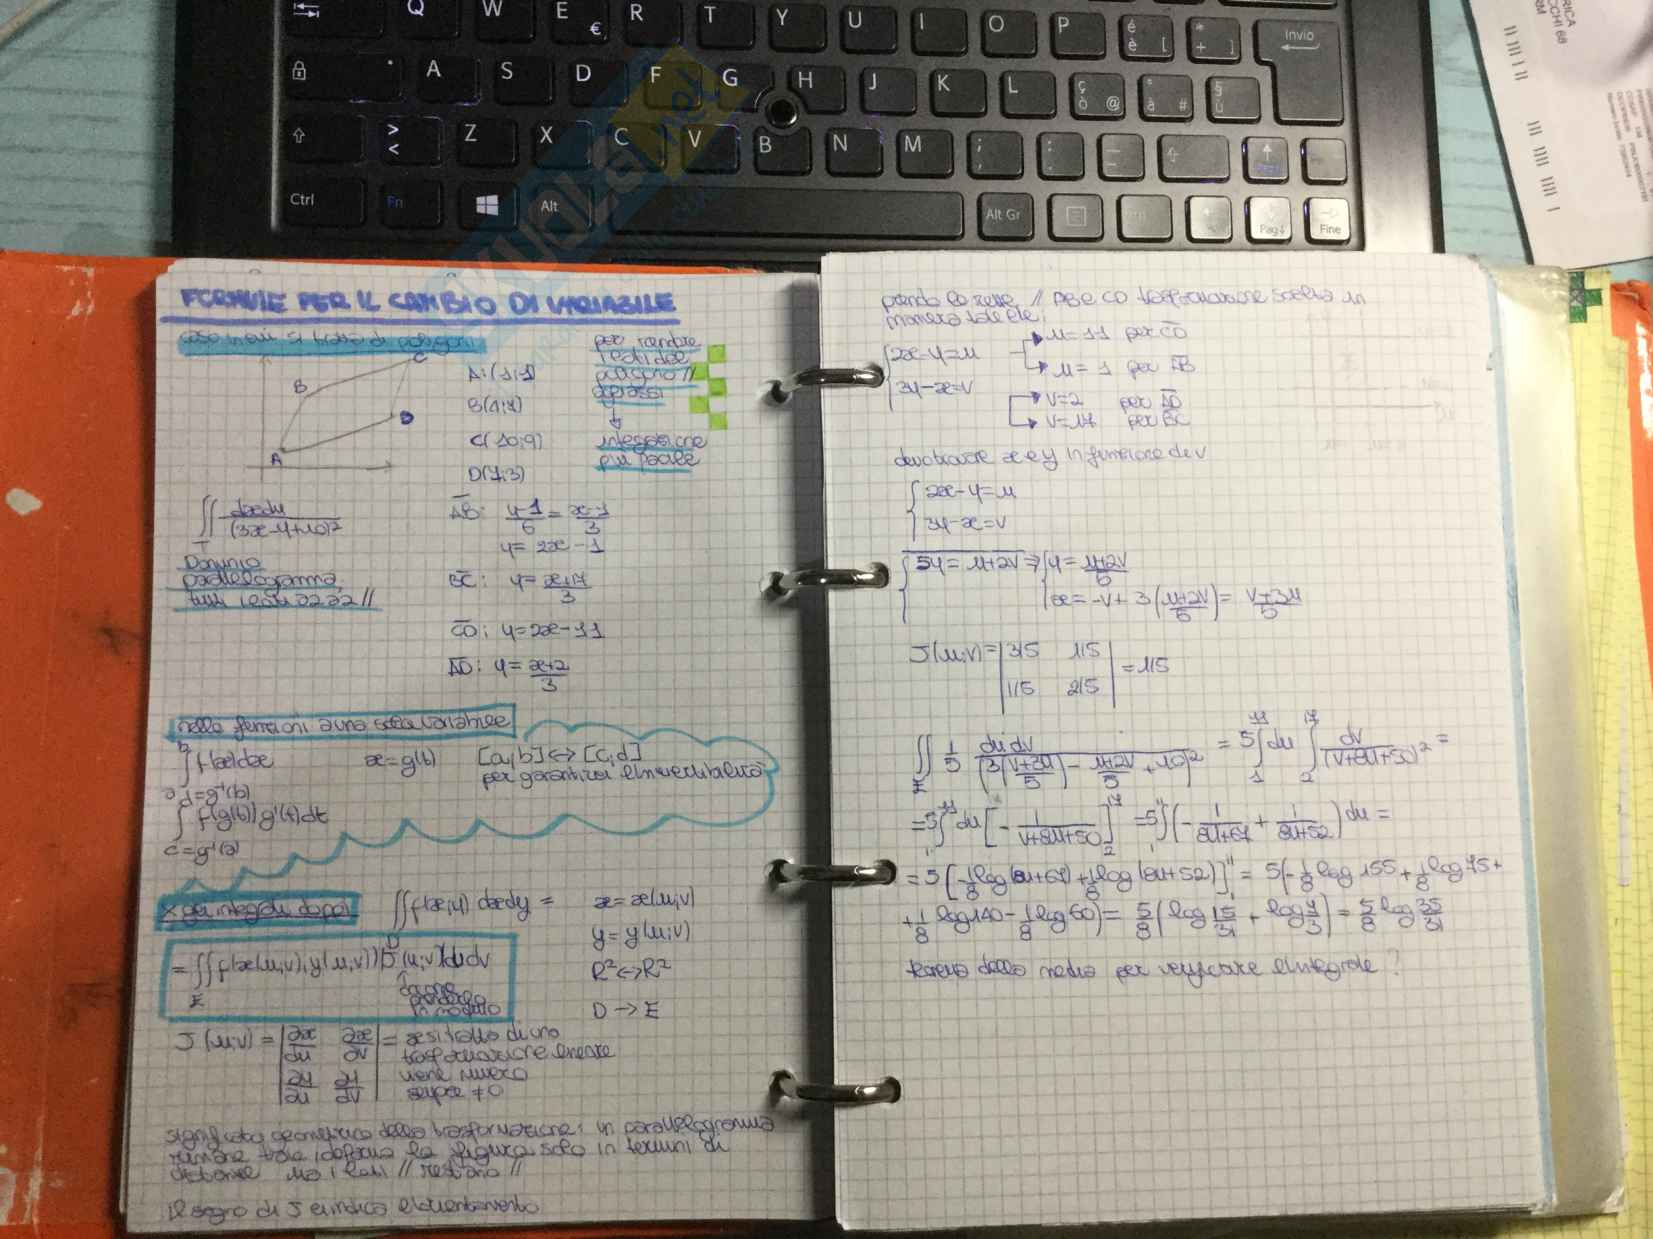 Q W E € R T Y U I O P é è [ * + ] Invio
A S D F G H J K L ç ò @ ° à # § ù
> < Z X C V B N M ; , : . _ -
Ctrl Fn Alt Alt Gr Pag↓ Fine
FORMULE PER IL CAMBIO DI VARIABILE
caso in cui si tratta di poligoni
per rendere
i lati del
poligono //
agli assi
↓
integrazione
più facile
A B C D
A:(1;1)
B(4;7)
C(10;9)
D(7;3)
∬_T dxdy/(3x-y+10)²
Dominio
parallelogramma,
tutti i lati a 2 a 2 //
AB: (y-1)/6 = (x-1)/3
y = 2x-1
BC: y = (x+17)/3
CD: y = 2x-11
AD: y = (x+2)/3
nelle funzioni a una sola variabile
∫ₐᵇ f(x)dx x = g(t) [a,b] ↔ [c,d]
per garantirci l'invertibilità
d = g⁻¹(b)
∫ f(g(t)) g'(t)dt
c = g⁻¹(a)
x gli integrali doppi
∬_D f(x,y) dxdy = x = x(u,v)
y = y(u,v)
= ∬_E f(x(u,v), y(u,v)) |J (u,v)| dudv
R² ↔ R²
prenderlo
in modulo
D → E
J (u,v) = | ∂x/∂u ∂x/∂v | = se si tratta di una
trasformazione lineare
| ∂y/∂u ∂y/∂v | viene numero
sempre ≠ 0
significato geometrico della trasformazione: un parallelogramma
rimane tale, deforma la figura solo in termini di
distanze ma i lati // restano //
Il segno di J ci indica l'orientamento
prendo le rette // AB e CD trasformazione scelta in
maniera tale che:
{ 2x-y = u → u = 11 per CD
→ u = 1 per AB
3y-x = v → v = 2 per AD
→ v = 17 per BC
devo trovare x e y in funzione di u v
{ 2x-y = u
3y-x = v
{ 5y = u+2v ⇒ { y = (u+2v)/5
x = -v + 3 (u+2v)/5 = (v+3u)/5
J(u,v) = | 3/5 1/5 | = 1/5
| 1/5 2/5 |
∬_E 1/5 dudv/(3(v+3u)/5 - (u+2v)/5 + 10)² = 5∫₁¹¹ du ∫₂¹⁷ dv/(v+8u+50)² =
= 5∫₁¹¹ du [- 1/(v+8u+50)]₂¹⁷ = 5∫₁¹¹ (- 1/(8u+67) + 1/(8u+52)) du =
= 5 [-1/8 log(8u+67) + 1/8 log(8u+52)]₁¹¹ = 5(-1/8 log 155 + 1/8 log 75 +
+ 1/8 log 140 - 1/8 log 60) = 5/8 (log 15/31 + log 7/3) = 5/8 log 35/31
teorema della media per verificare l'integrale ?